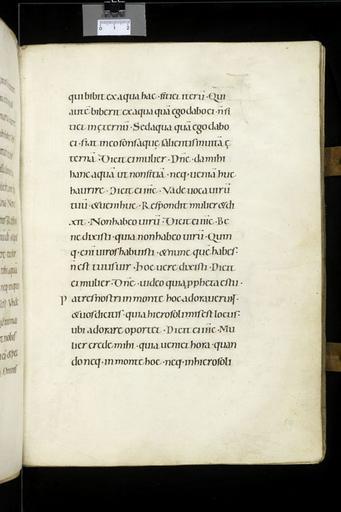 qui bibit ex aqua hac · sitiet iterū · Qui
autē biberit ex aqua quā ego dabo ei · ñ si
tiet in ęternū · Sed aqua quā ego dabo
ei · fiet in eo fons aquę salientis in uitā ę
ternā · Dicit ei mulier · Dn̄e · da mihi
hanc aquā ut non sitiā · neq · ueniā huc
haurire · Dicit ei · Vade uoca uirū
tuū & ueni huc · Respondit mulier & di
xit · Non habeo uirū · Dicit ei · Be
ne dixisti · quia non habeo uirū · Quin
q · eni uiros habuisti · & nunc quē habes ·
n est tuus uir · hoc uere dixisti · Dicit
ei mulier · Dn̄e · uideo quia ppheta es tu ·
Patres nostri in monte hoc adorauerunt ·
& uos dicitis · quia hierosolimis est locus ·
ubi adorare oportet · Dicit ei · Mu
lier crede mihi · quia ueniet hora · quan
do neq · in monte hoc · neq · in hierosoli